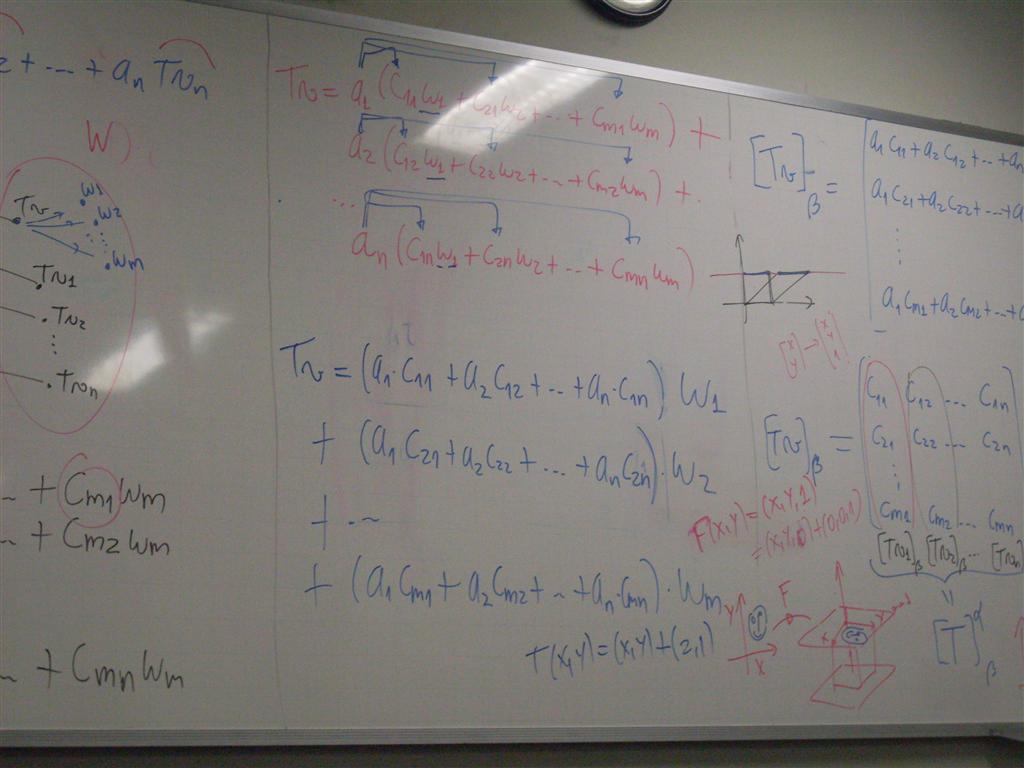 2 + ... + an Tvn
W)
Tv
w1
w2
wm
Tv1
Tv2
Tvn
... + Cm1 wm
... + Cm2 wm
... + Cmn wm
Tv = a1 (C11 w1 + C21 w2 + ... + Cm1 wm) +
a2 (C12 w1 + C22 w2 + ... + Cm2 wm) +
...
an (C1n w1 + C2n w2 + ... + Cmn wm)
Tv = (a1·C11 + a2 C12 + ... + an·C1n) w1
+ (a1 C21 + a2 C22 + ... + an C2n)·w2
+ ...
+ (a1 Cm1 + a2 Cm2 + ... + an·Cmn)·wm
T(x,y) = (x,y) + (2,1)
[Tv]β =
a1 C11 + a2 C12 + ... + an
a1 C21 + a2 C22 + ... + a
a1 Cm1 + a2 Cm2 + ... +
[x y] → [x y 1]
[Tv]β =
C11 C12 ... C1n
C21 C22 ... C2n
Cm1 Cm2 ... Cmn
[Tv1]β [Tv2]β ... [Tvn]
=
[T]αβ
F(x,y) = (x,y,1)
= (x,y,0) + (0,0,1)
y
x
F
x